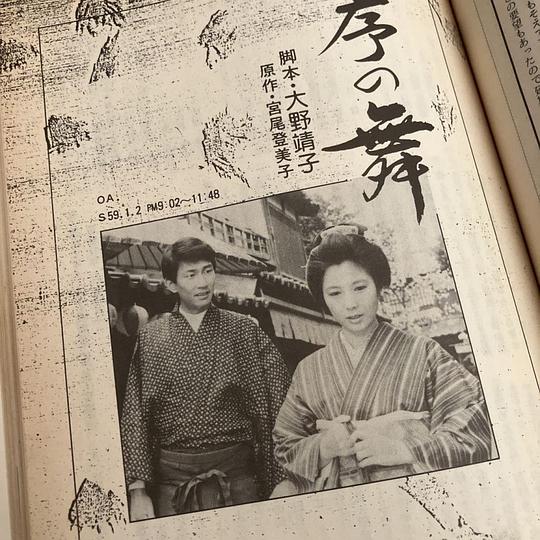 序の舞
脚本・大野靖子
原作・宮尾登美子
OA.
S59.1.2 PM9:02～11:48
の要望もあったので